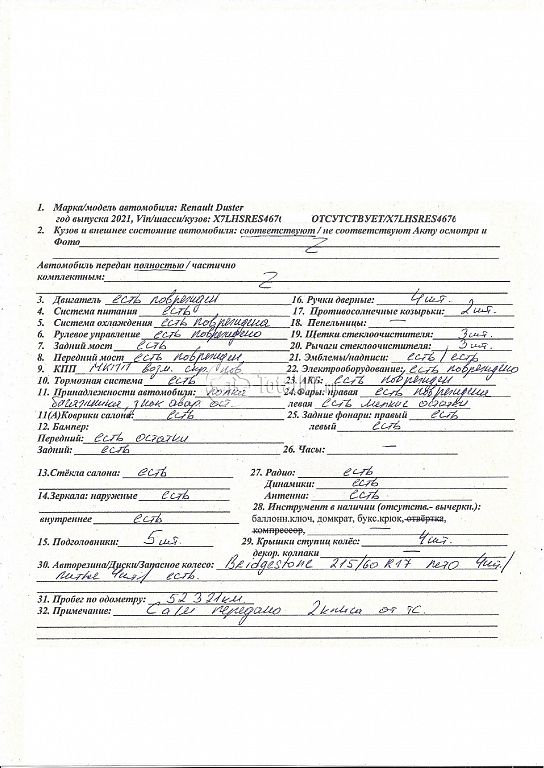 1. Марка/модель автомобиля: Renault Duster
год выпуска 2021, Vin/шасси/кузов: X7LHSRES467( ОТСУТСТВУЕТ/X7LHSRES4676
2. Кузов и внешнее состояние автомобиля: соответствуют / не соответствуют Акту осмотра и
Фото Z
Автомобиль передан полностью / частично
комплектным: Z
3. Двигатель есть поврежден 16. Ручки дверные: 4 шт.
4. Система питания есть 17. Противосолнечные козырьки: 2 шт.
5. Система охлаждения есть повреждена 18. Пепельницы: —
6. Рулевое управление есть повреждено 19. Щетки стеклоочистителя: 3 шт.
7. Задний мост есть 20. Рычаги стеклоочистителя: 3 шт.
8. Передний мост есть поврежден 21. Эмблемы/надписи: есть / есть
9. КПП МКПП возм. скр. пов. 22. Электрооборудование: есть повреждено
10. Тормозная система есть 23. АКБ: есть поврежден
11. Принадлежности автомобиля: 24. Фары: правая есть повреждена
ост. левая есть мелкие остатки
11(А)Коврики салона: есть 25. Задние фонари: правый есть
12. Бампер: левый есть
Передний: есть остатки
Задний: есть 26. Часы: —
13.Стёкла салона: есть 27. Радио: есть
Динамики: есть
14.Зеркала: наружные есть Антенна: есть
28. Инструмент в наличии (отсутств.- вычеркн.):
внутреннее есть баллонн.ключ, домкрат, букс.крюк, отвёртка,
компрессор, —
15. Подголовники: 5 шт. 29. Крышки ступиц колёс: 4 шт.
декор. колпаки —
30. Авторезина/Диски/Запасное колесо: Bridgestone 215/60 R17 лето 4шт/
литые 4шт/ есть.
31. Пробег по одометру: 52321км
32. Примечание: передано 2 ключа от ТС.